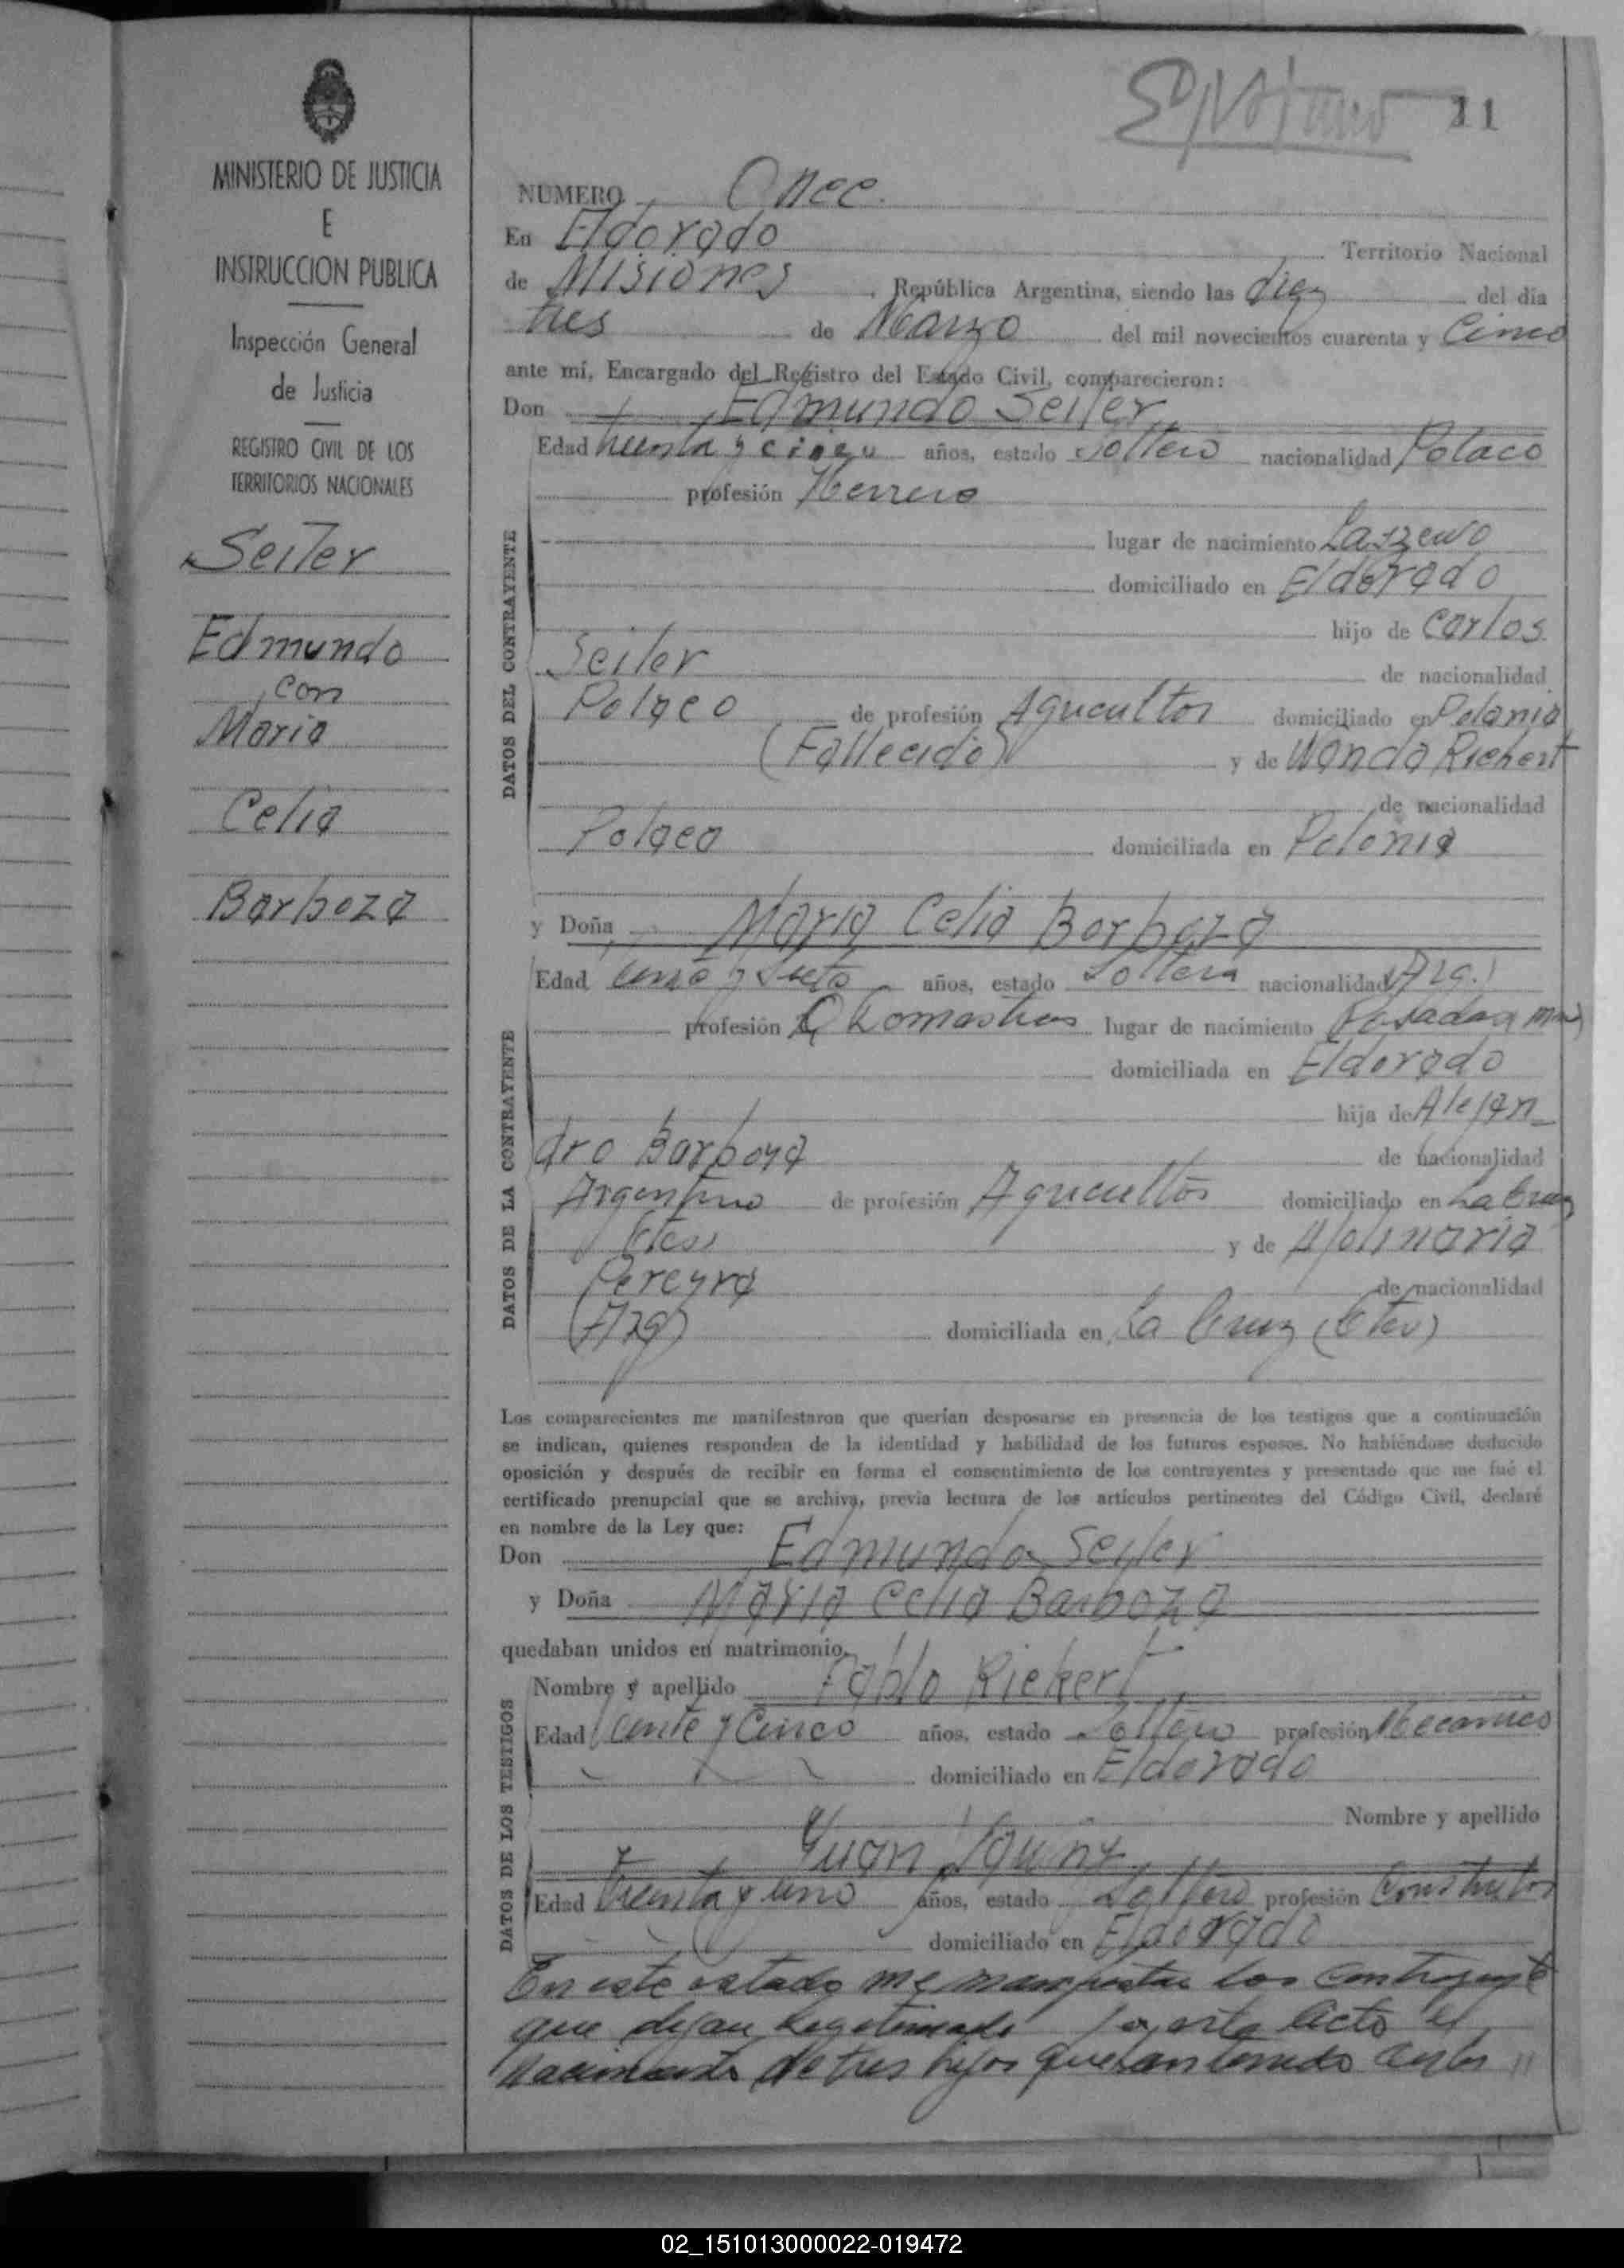 MINISTERIO DE JUSTICIA
E
INSTRUCCION PUBLICA
Inspección General
de Justicia
REGISTRO CIVIL DE LOS
TERRITORIOS NACIONALES
Seiler
Edmundo
con
Maria
Celia
Barboza
11
NUMERO Once.
En Eldorado Territorio Nacional
de Misiones, República Argentina, siendo las diez del día
tres de Marzo del mil novecientos cuarenta y Cinco
ante mí, Encargado del Registro del Estado Civil, comparecieron:
Don Edmundo Seiler
Edad treinta y cinco años, estado Soltero nacionalidad Polaco
profesión Herrero
DATOS DEL CONTRAYENTE
lugar de nacimiento
domiciliado en Eldorado
hijo de Carlos
Seiler de nacionalidad
Polaco de profesión Agricultor domiciliado en Polonia
(Fallecido) y de Wanda Richert
de nacionalidad
Polaca domiciliada en Polonia
y Doña Maria Celia Barboza
Edad años, estado Soltera nacionalidad Arg.
profesión Q Domesticos lugar de nacimiento Posadas
DATOS DE LA CONTRAYENTE
domiciliada en Eldorado
hija de Alejan
dro Barboza de nacionalidad
Argentino de profesión Agricultor domiciliado en La Cruz
Ctes. y de Apolinaria
Pereyra de nacionalidad
(Arg) domiciliada en La Cruz (Ctes)
Los comparecientes me manifestaron que querían desposarse en presencia de los testigos que a continuación
se indican, quienes responden de la identidad y habilidad de los futuros esposos. No habiéndose deducido
oposición y después de recibir en forma el consentimiento de los contrayentes y presentado que me fué el
certificado prenupcial que se archiva, previa lectura de los artículos pertinentes del Código Civil, declaré
en nombre de la Ley que:
Don Edmundo Seiler
y Doña Maria Celia Barboza
quedaban unidos en matrimonio.
DATOS DE LOS TESTIGOS
Nombre y apellido Pablo Riekert
Edad Veinte y Cinco años, estado Soltero profesión Mecanico
domiciliado en Eldorado
Nombre y apellido
Juan
Edad Treinta y uno años, estado Soltero profesión Constructor
domiciliado en Eldorado
En este estado me manifiestan los contrayente
que dejan Legitimado por este Acto el
Nacimiento de tres hijos que an tenido
02_151013000022-019472